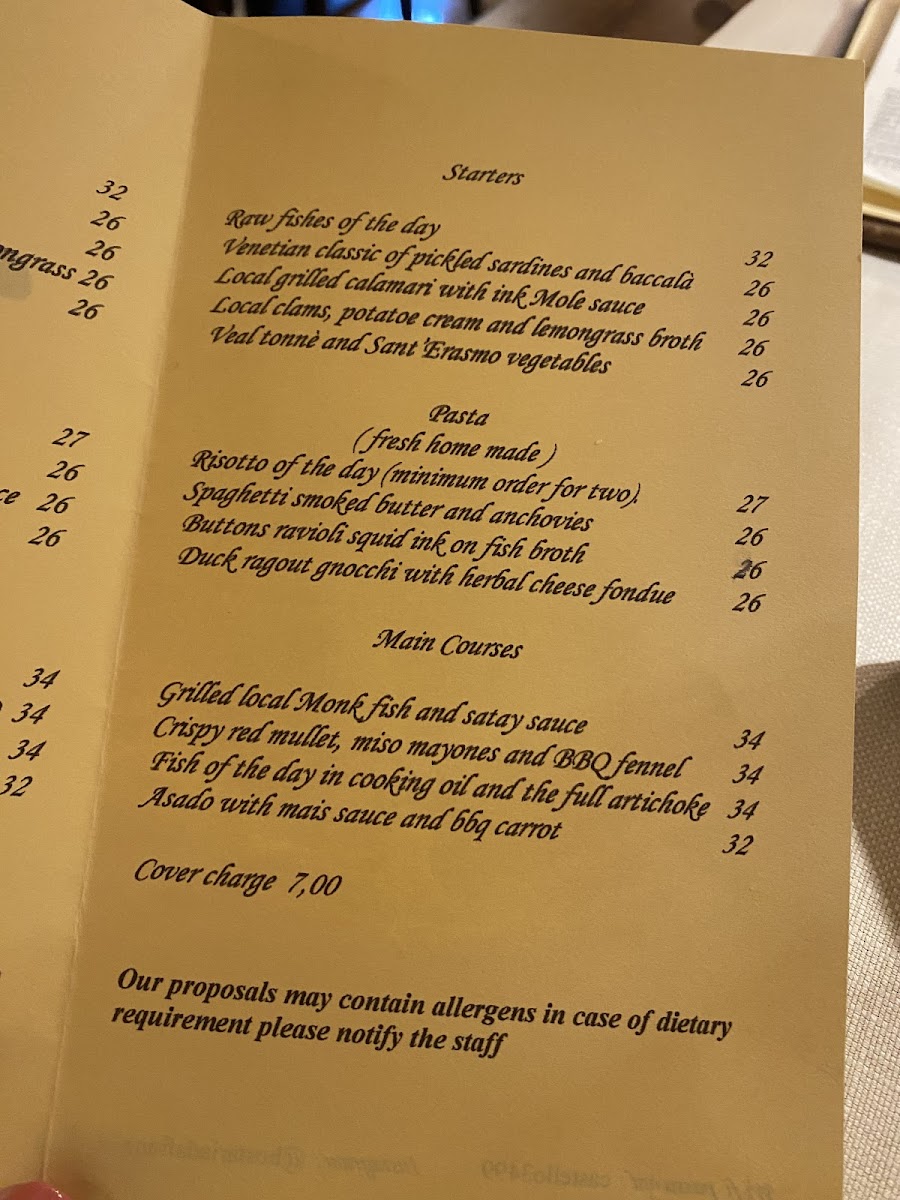 32
26
26
ongrass 26
26
27
26
ce 26
26
34
34
34
32
Starters
Raw fishes of the day 32
Venetian classic of pickled sardines and baccalà 26
Local grilled calamari with ink Mole sauce 26
Local clams, potatoe cream and lemongrass broth 26
Veal tonnè and Sant'Erasmo vegetables 26
Pasta
(fresh home made)
Risotto of the day (minimum order for two). 27
Spaghetti smoked butter and anchovies 26
Buttons ravioli squid ink on fish broth 26
Duck ragout gnocchi with herbal cheese fondue 26
Main Courses
Grilled local Monk fish and satay sauce 34
Crispy red mullet, miso mayones and BBQ fennel 34
Fish of the day in cooking oil and the full artichoke 34
Asado with mais sauce and bbq carrot 32
Cover charge 7,00
Our proposals may contain allergens in case of dietary
requirement please notify the staff